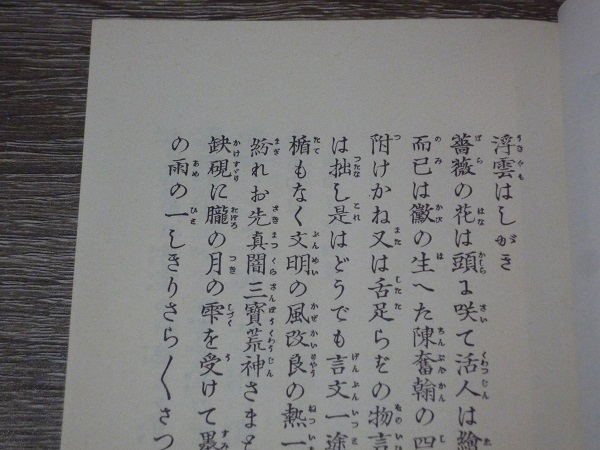 浮雲はしがき
薔薇の花は頭に咲て活人は繪
而已は黴の生へた陳奮翰の四
附けかね又は舌足らずの物言
は拙し是はどうでも言文一途
楯もなく文明の風改良の熱一
紛れお先真闇三寶荒神さまと
缺硯に朧の月の雫を受けて墨
の雨の一しきりさら〱さつ